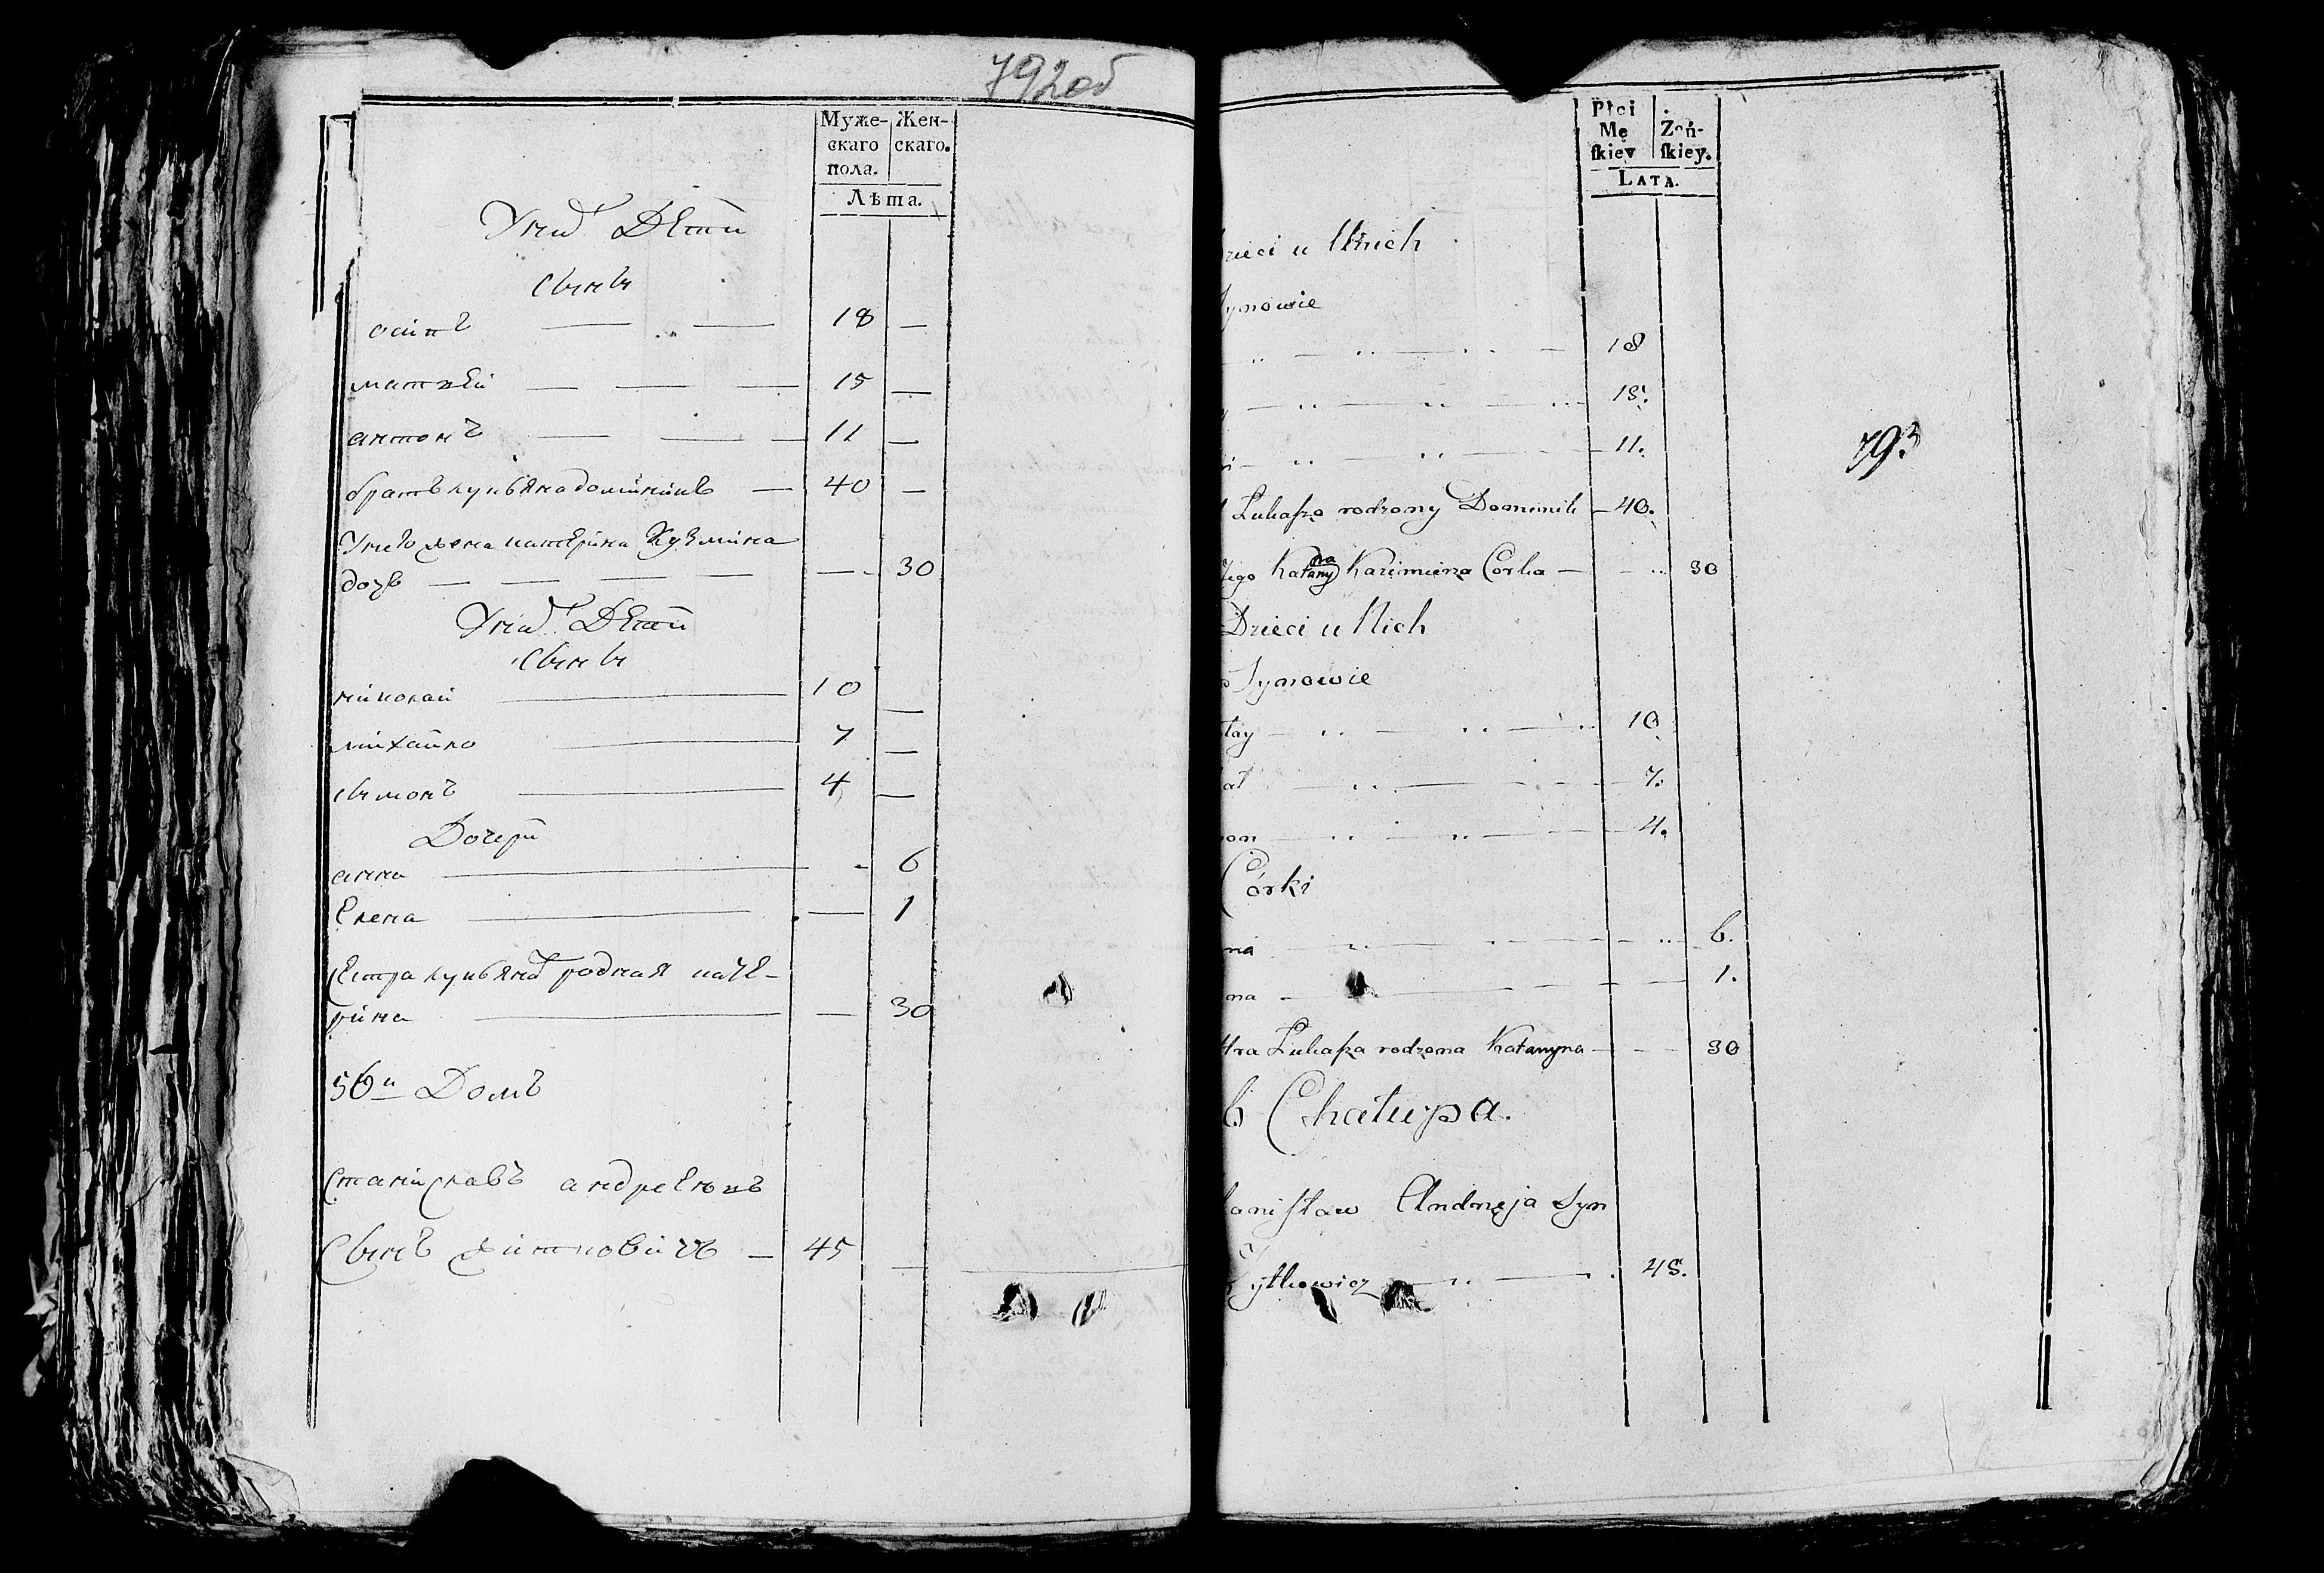 792об
Муже-
скаго
пола.
Жен-
скаго.
Лѣта.
У нихъ Дети
Сыны
осипъ 18 —
матвей 15 —
антонъ 11 —
братъ лукьяна доминикъ — 40 —
У него жена катерина
дочь — 30
У нихъ Дети
Сыны
николай 10 —
михайло 7 —
сымонъ 4 —
Дочери
анна — 6
Елена — 1
Сестра лукьяна родная кате-
рина — 30
56й Домъ
Станиславъ андреевъ
Сынъ житковичъ — 45 —
Płci
Mę
ſkiey
Żeń-
ſkiey.
LATA.
zieci u Nich
ynowie
18
15.
11.
Łukaſza rodzony Dominik — 40.
Jego Katarzyna Kazimierza Corka — 30
Dzieci u Nich
Synowie
łay 10
ał 7.
on 4.
Córki
na 6.
na 1.
tra Łukaſza rodzona Katarzyna — 30
6 Chałupa.
taniſław Andrzeja Syn
Żytkowicz 45.
793